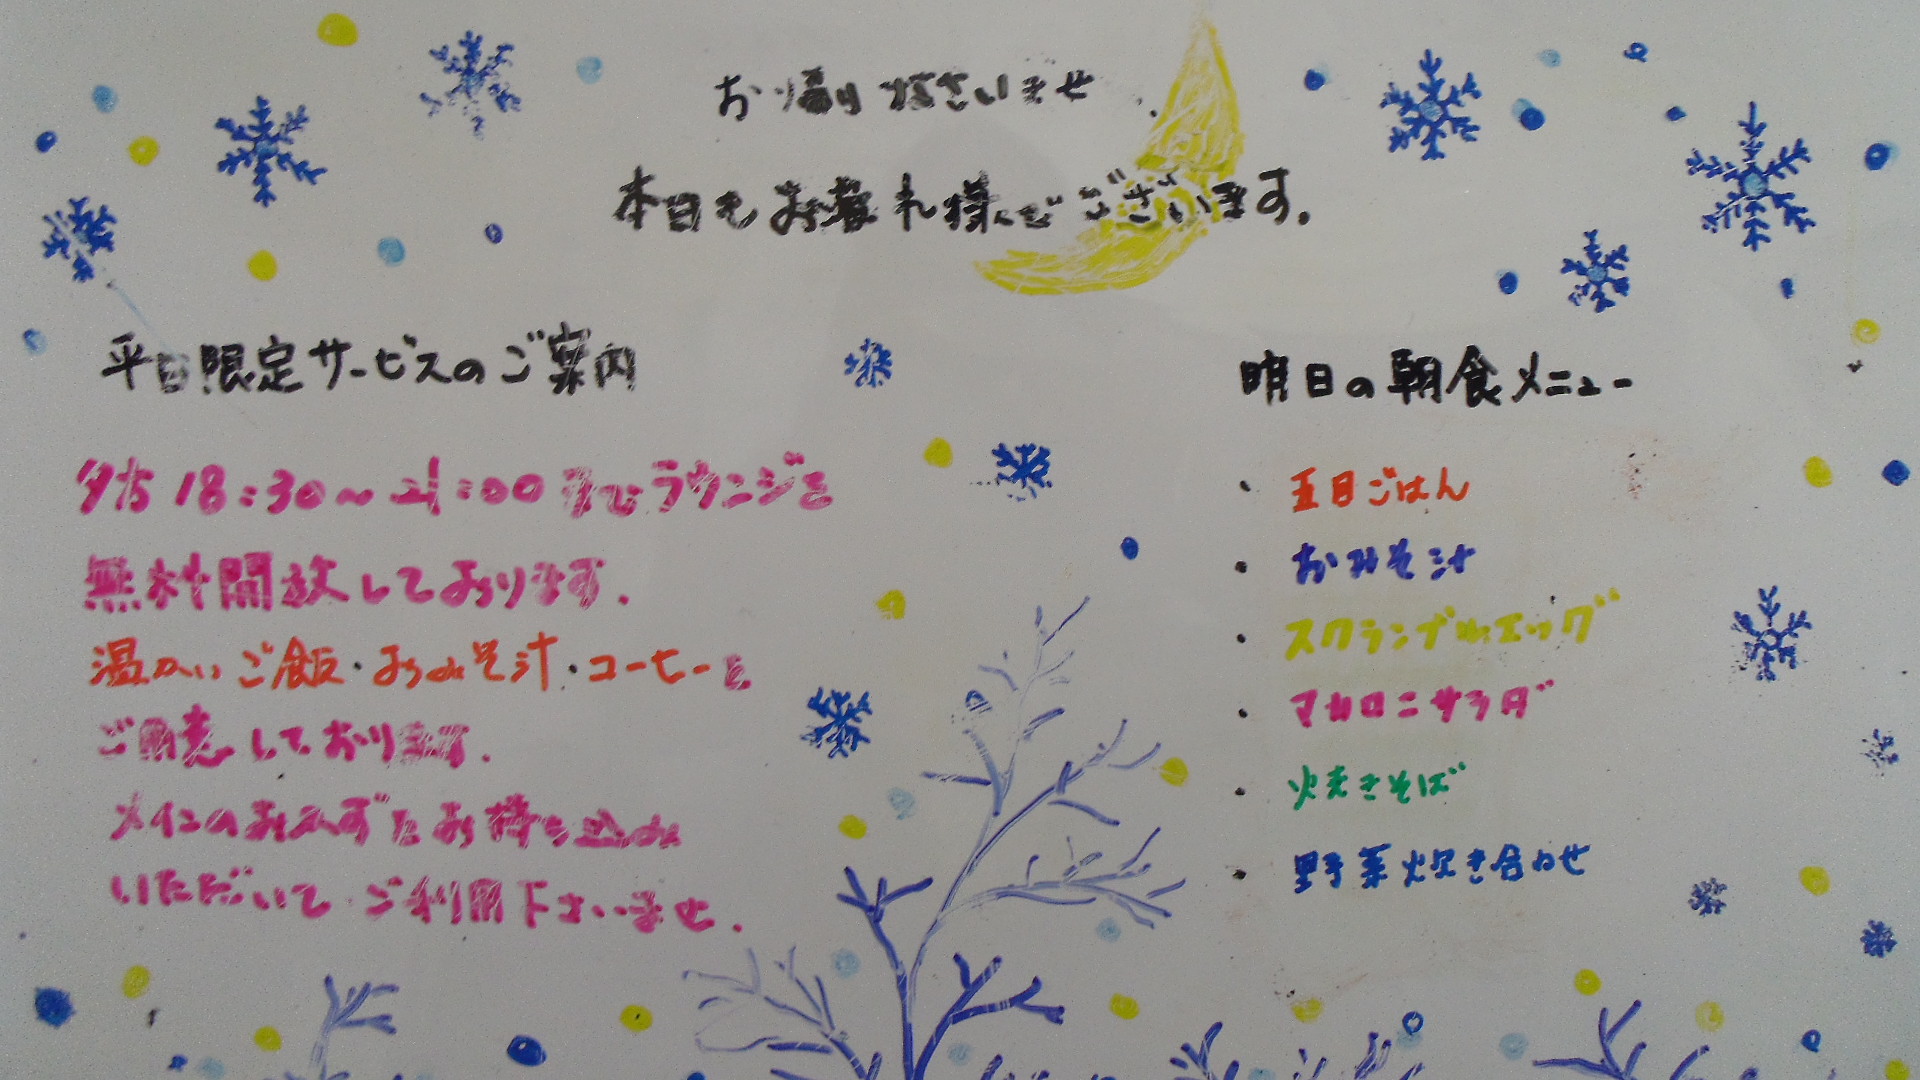 お帰りなさいませ
本日もお疲れ様でございます。
平日限定サービスのご案内
夕方18:30～21:00までラウンジを
無料開放しております。
温かいご飯・おみそ汁・コーヒーを
ご用意しております。
メインのおかずだけお持ち込み
いただいてご利用下さいませ。
明日の朝食メニュー
・五目ごはん
・おみそ汁
・スクランブルエッグ
・マカロニサラダ
・焼きそば
・野菜炊き合わせ